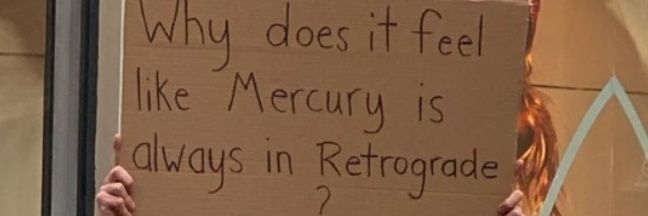 Why does it feel
like Mercury is
always in Retrograde
?